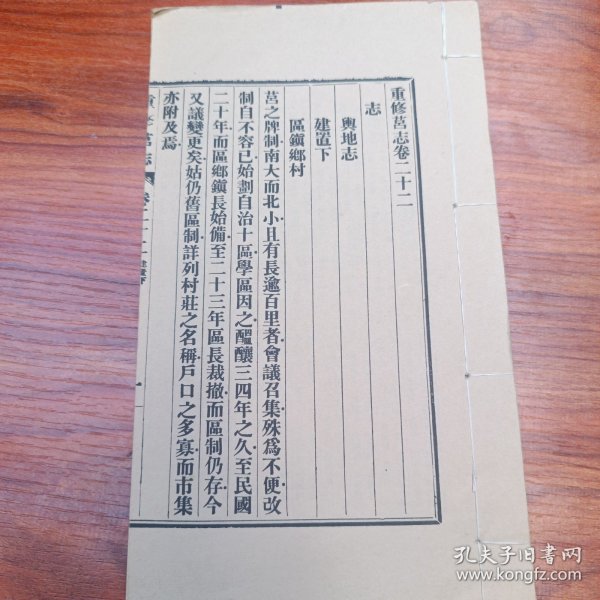 重修莒志卷二十二
志
輿地志
建置下
區鎭鄉村
莒之牌制南大而北小且有長逾百里者會議召集殊爲不便改
制自不容已始劃自治十區學區因之醞釀三四年之久至民國
二十年而區鄉鎭長始備至二十三年區長裁撤而區制仍存今
又議變更矣姑仍舊區制詳列村莊之名稱戶口之多寡而市集
亦附及焉
孔夫子旧书网
www.kongfz.com